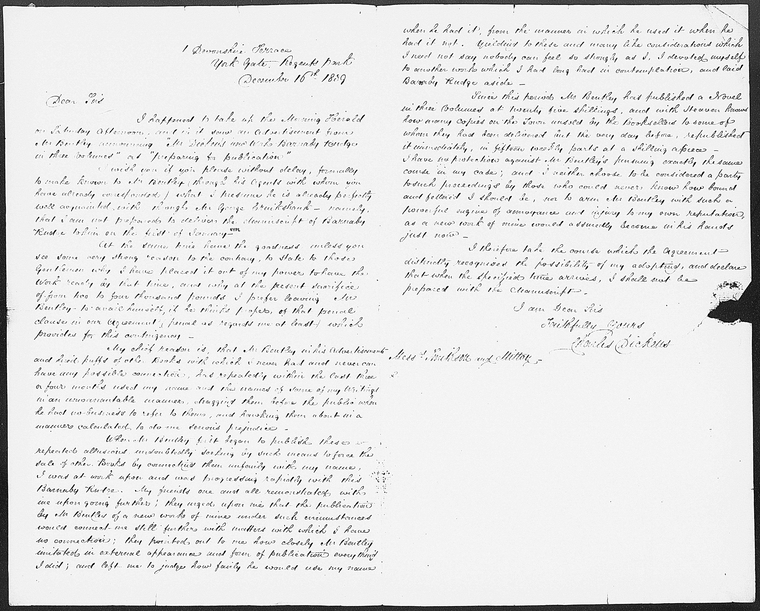 1 Devonshire Terrace
York Gate, Regents Park
December 16th 1839
Dear Sirs
I happened to take up the Morning Herald
on Saturday Afternoon, and in it saw an Advertisement from
Mr Bentley announcing Mr Dickens' new Work Barnaby Rudge
in three volumes" as "preparing for publication"
I wish you if you please without delay, formally
to make known to Mr Bentley, through his Agents with whom you
have already what I presume he is already perfectly
well acquainted with through Mr George Cruikshank - namely,
that I am not prepared to deliver the manuscript of Barnaby
Rudge to him on the first of January
At the same time have the goodness, unless you
see some very strong reason to the contrary, to state to those
Gentlemen why I have placed it out of my power to have the
Work ready by that time, and why at the present sacrifice
of from two to four thousand pounds I prefer leaving Mr
Bentley to avail himself, if he thinks proper, of that penal
clause in our Agreement, (penal as regards me at least) which
provides for this contingency -
My chief reason is, that Mr Bentley in his Advertisements
and hired puffs of other Books with which I never had and never can
have any possible connection, has repeatedly within the last three
or four months used my name and the names of some of my Writings
in an unwarrantable manner, dragging them before the public when
he had no business to refer to them, and hawking them about in a
manner calculated to do me serious prejudice -
When Mr Bentley first began to publish these
repeated allusions undoubtedly seeking by such means to force the
sale of other Books by connecting them unfairly with my name,
I was at work upon and was progressing rapidly with this
Barnaby Rudge. My friends one and all remonstrated with
me upon going further; they urged upon me that the publication
by Mr Bentley of a new work of mine under such circumstances
would connect me still further with matters with which I have
no connection; they pointed out to me how closely Mr Bentley
imitated in external appearance and form of publication everything
I did; and left me to judge how fairly he would use my name
when he had it, from the manner in which he used it when he
had it not. Yielding to these and many like considerations which
I need not say nobody can feel so strongly as I, I devoted myself
to another work which I had long had in contemplation, and laid
Barnaby Rudge aside -
Since this period Mr Bentley has published a Novel
in three Volumes at twenty five shillings, and with Heaven knows
how many copies on the Town unsold by the Booksellers to some of
whom they had been delivered but the very day before, republished
it immediately, in fifteen weekly parts at a shilling apiece -
I have no protection against Mr Bentley's pursuing exactly the same
course in my case; and I neither choose to be considered a party
to such proceedings by those who could never know how bound
and fettered I should be, nor to arm Mr Bentley with such a
powerful engine of annoyance and injury to my own reputation,
as a new work of mine would assuredly become in his hands
just now -
I therefore take the course which the Agreement
distinctly recognises the possibility of my adopting, and declare
that when the specified time arrives, I shall not be
prepared with the Manuscript -
I am Dear Sirs
Faithfully Yours
Charles Dickens
Messrs Smithson and Mitton